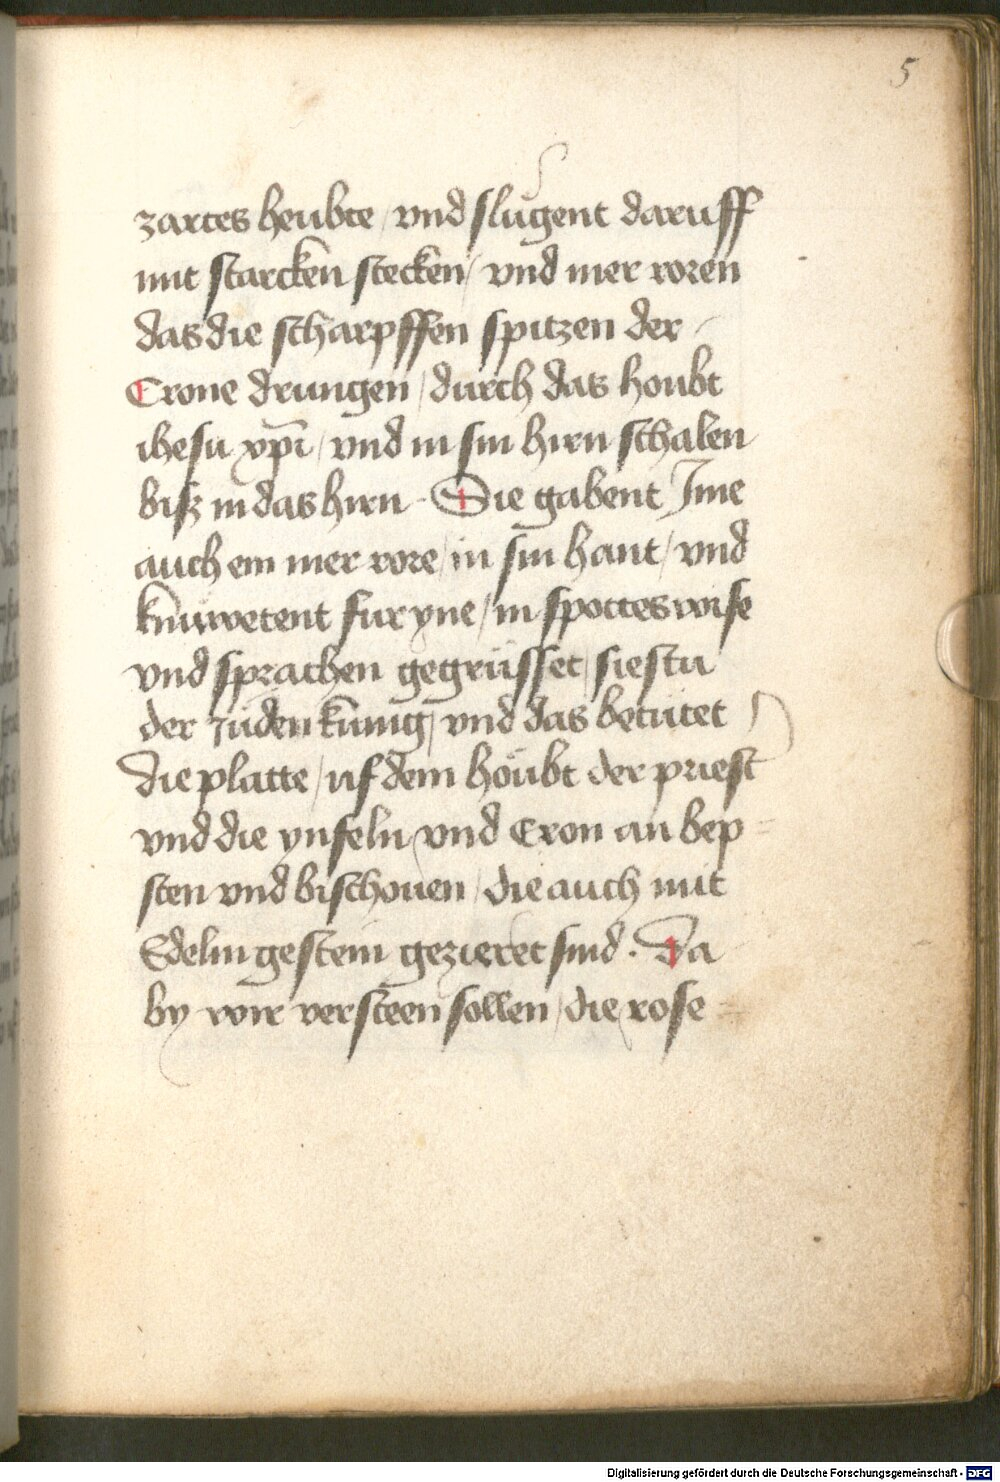 5
zartes heubte / vnd slůgent daruff
mit starcken stecken / vnd mer roren
das die scharpffen spitzen der
Crone drungen / durch das houbt
ihesu xp̄i / vnd in sin hirn schalen
bisz in das hirn · Sie gabent Ime
auch ein mer rore / in sin hant / vnd
knuwetent fur yne / in spottes wise
vnd sprachen gegrüsset / siestu
der Juden kunig / vnd das betütet
die platte / uf dem höubt der priest
vnd die ynfeln / vnd Cron an bep=
sten vnd bischouen / die auch mit
Edelm gestein gezieret sind · Da
by wir versteen sollen / die rose =
Digitalisierung gefördert durch die Deutsche Forschungsgemeinschaft - DFG